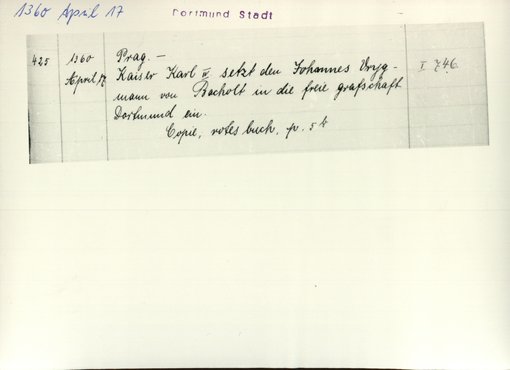 1360 April 17
Dortmund Stadt
425 1360 Prag. — I 746.
April 17. Kaiser Karl IV. setzt den Johannes Vryg-
mann von Bocholt in die freie grafschaft
Dortmund ein.
Copie, rotes buch, p. 5